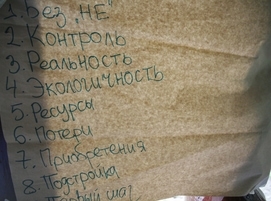 1. Без „НЕ"
2. Контроль
3. Реальность
4. Экологичность
5. Ресурсы
6. Потери
7. Приобретения
8. Подстройка
Первый шаг